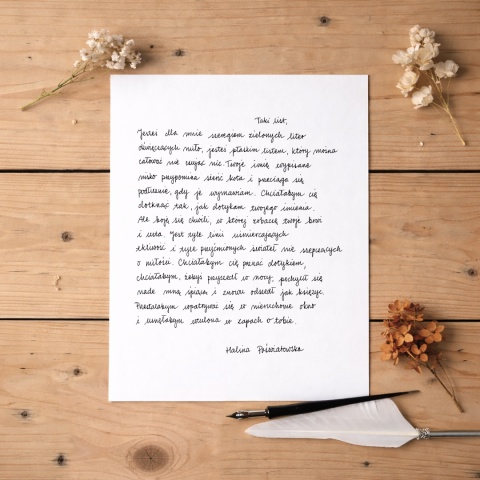 Taki list,
Jesteś dla mnie szeregiem zielonych liter
dźwięczących miło, jesteś płaskim listem, który można
całować nie czując nic. Twoje imię wypisane
nisko przypomina sierść kota i przeciąga się
podłużnie, gdy je wymawiam. Chciałabym cię
dotknąć tak, jak dotykam twojego imienia.
Ale boję się chwili, w której zobaczę twoje brwi
i usta. Jest tyle linii uśmiercających
tkliwość i tyle przyćmionych świateł nie szepczących
o miłości. Chciałabym cię poznać dotykiem,
chciałabym, żebyś przyszedł w nocy, pochylił się
nade mną śpiącą i znowu odszedł jak księżyc.
Przestałabym wpatrywać się w nieruchome okno
i usnęłabym wtulona w zapach o tobie.
Halina Poświatowska